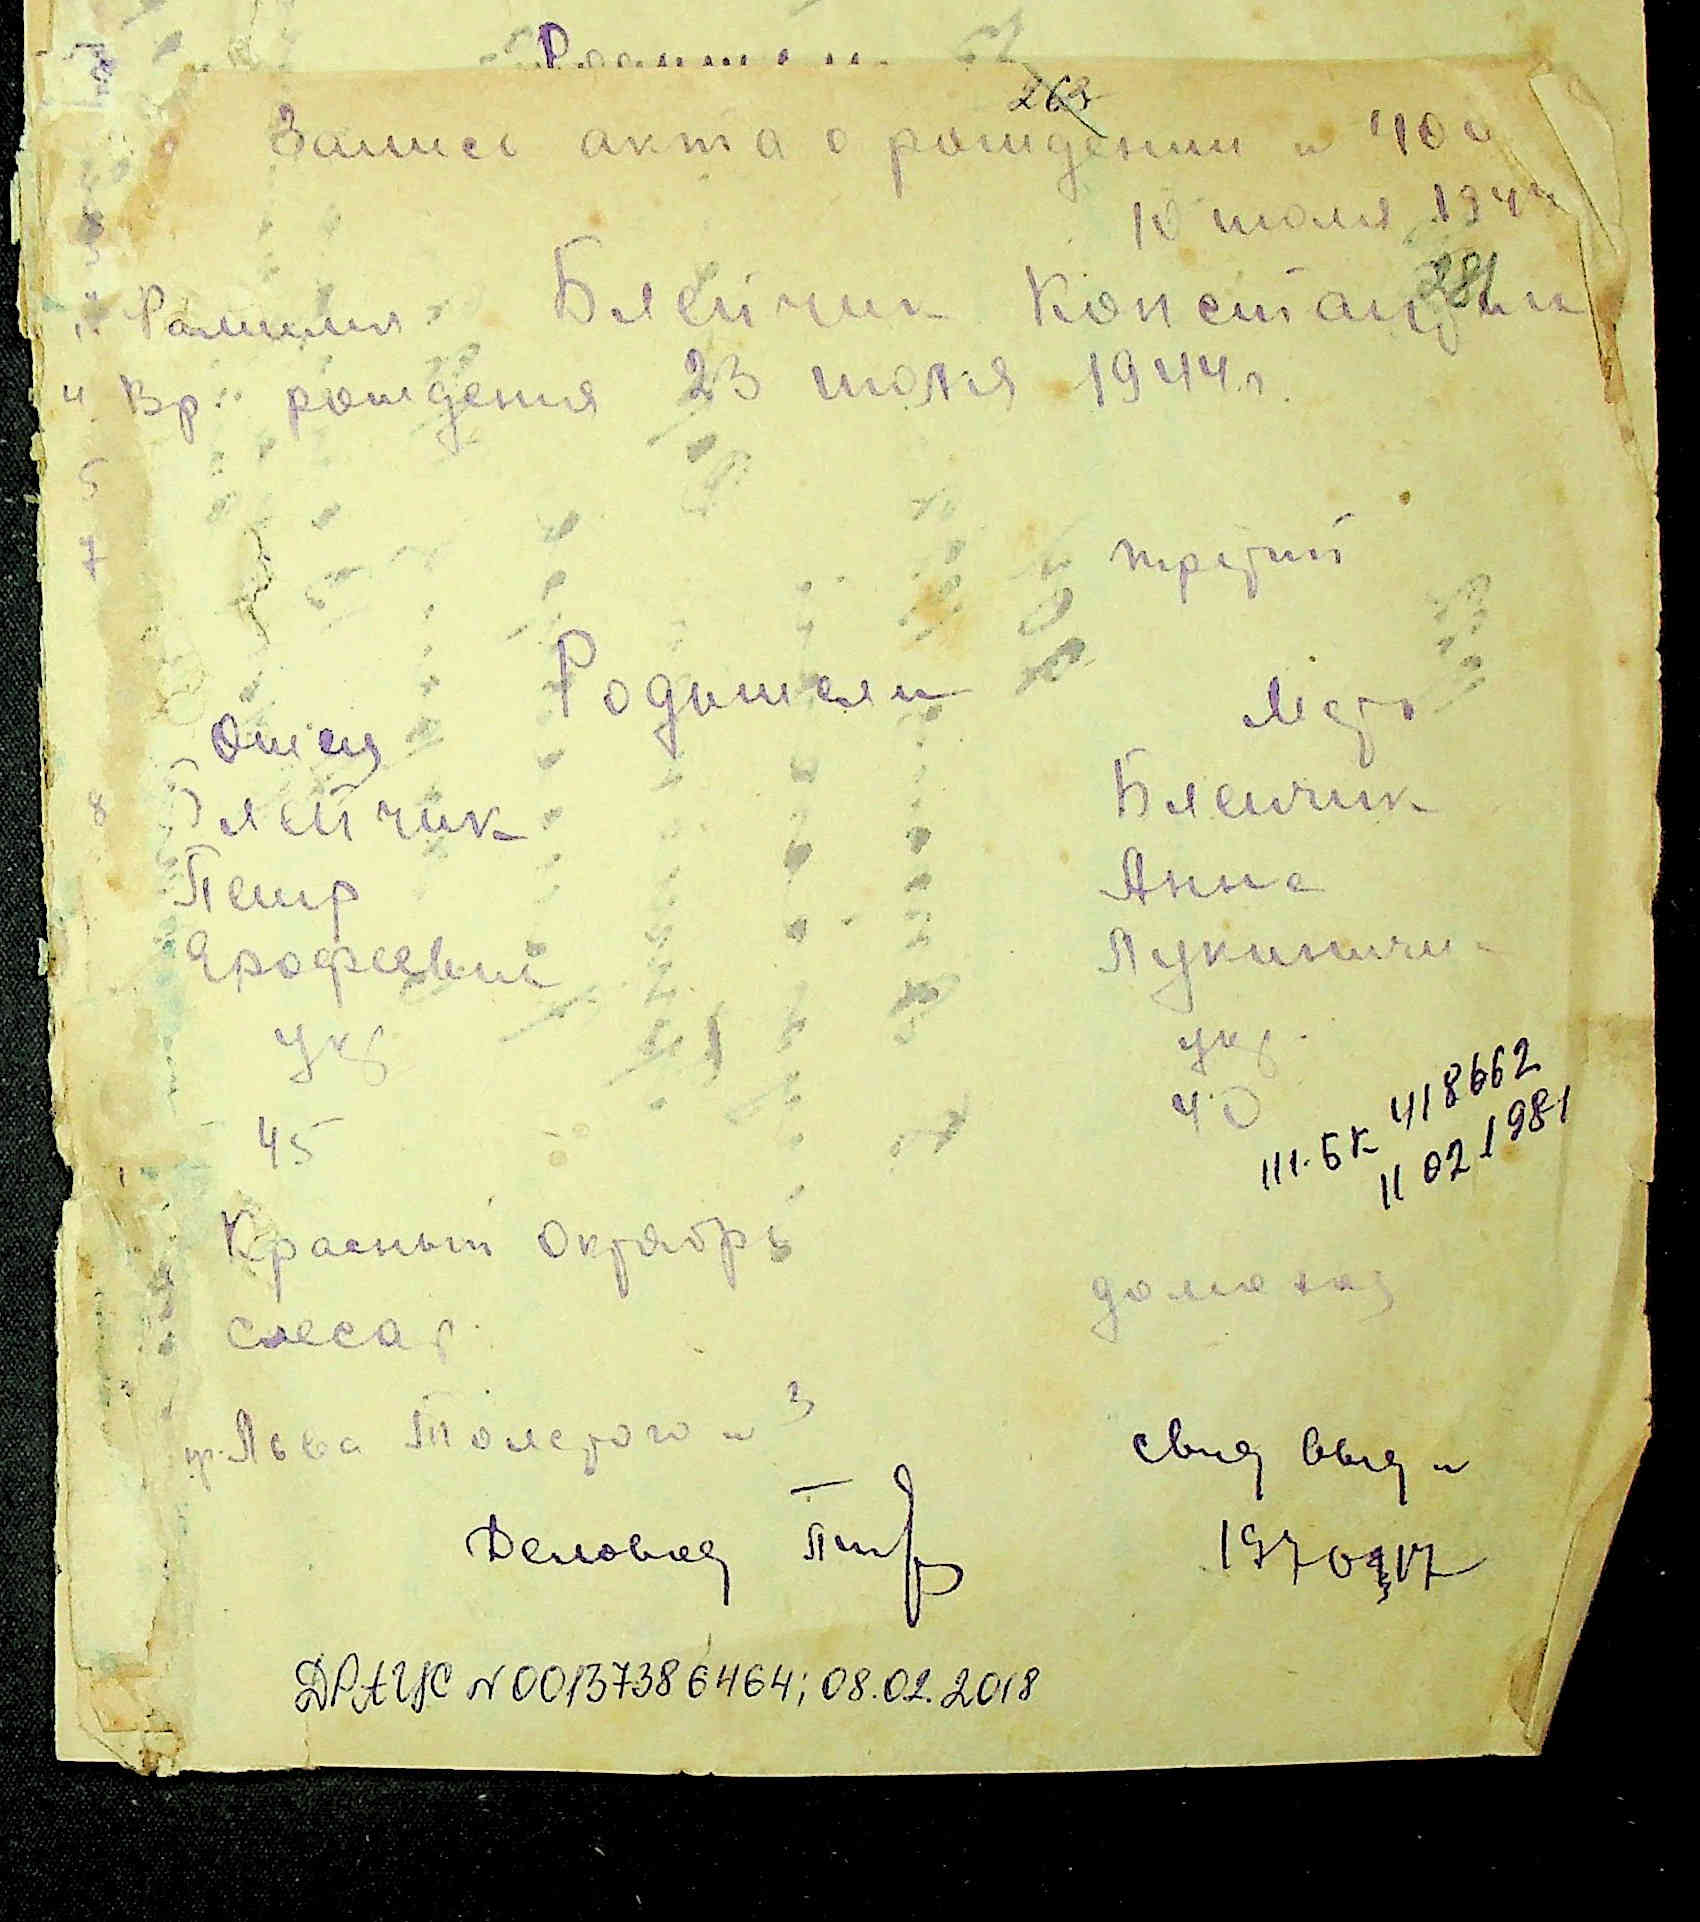 263
Запись акта о рождении № 400
10 июля 1944
281
1. Фамилия Блейчик Константин
4 Вр. рождения 23 июля 1944 г.
5
7 третий
Родители
Отец Мать
8 Блейчик Блейчик
Петр Анна
Ерофеевич Лукинична
укр укр.
45 40
III-БК 418662
11 02 1981
Красный Октябрь
слесар домохоз
ул. Льва Толстого № 3
свид выд №
Деловод
ДРАЦС N 00137386464; 08.02.2018